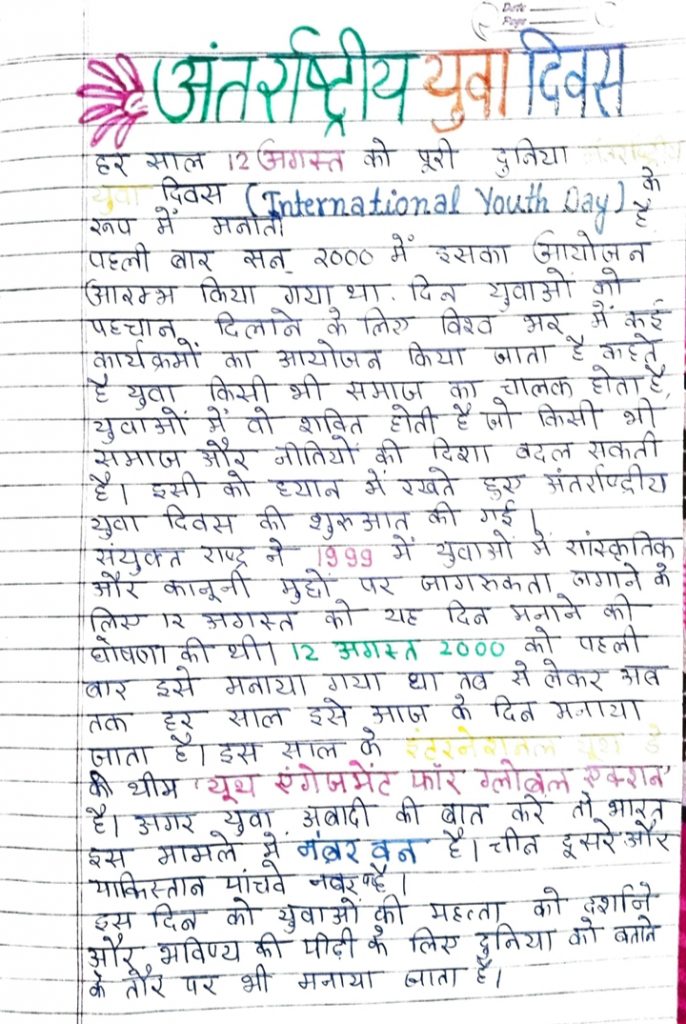 Date
Page
अंतर्राष्ट्रीय युवा दिवस
हर साल 12 अगस्त को पूरी दुनिया अंतर्राष्ट्रीय
युवा दिवस (International Youth Day) के
रूप में मनाती है
पहली बार सन् 2000 में इसका आयोजन
आरम्भ किया गया था. दिन युवाओं को
पहचान दिलाने के लिए विश्व भर में कई
कार्यक्रमों का आयोजन किया जाता है कहते
है युवा किसी भी समाज का चालक होता है,
युवाओं में वो शक्ति होती है जो किसी भी
समाज और नीतियों की दिशा बदल सकती
है। इसी को ध्यान में रखते हुए अंतर्राष्ट्रीय
युवा दिवस की शुरुआत की गई।
संयुक्त राष्ट्र ने 1999 में युवाओं में सांस्कृतिक
और कानूनी मुद्दों पर जागरुकता जगाने के
लिए 12 अगस्त को यह दिन मनाने की
घोषणा की थी। 12 अगस्त 2000 को पहली
बार इसे मनाया गया था तब से लेकर अब
तक हर साल इसे आज के दिन मनाया
जाता है। इस साल के इंटरनेशनल यूथ डे
की थीम 'यूथ एंगेजमेंट फॉर ग्लोबल एक्शन'
है। अगर युवा अबादी की बात करे तो भारत
इस मामले में नंबर वन है। चीन दूसरे और
पाकिस्तान पांचवे नंबर पर है।
इस दिन को युवाओं की महत्ता को दर्शाने
और भविष्य की पीढ़ी के लिए दुनिया को बताने
के तौर पर भी मनाया जाता है।